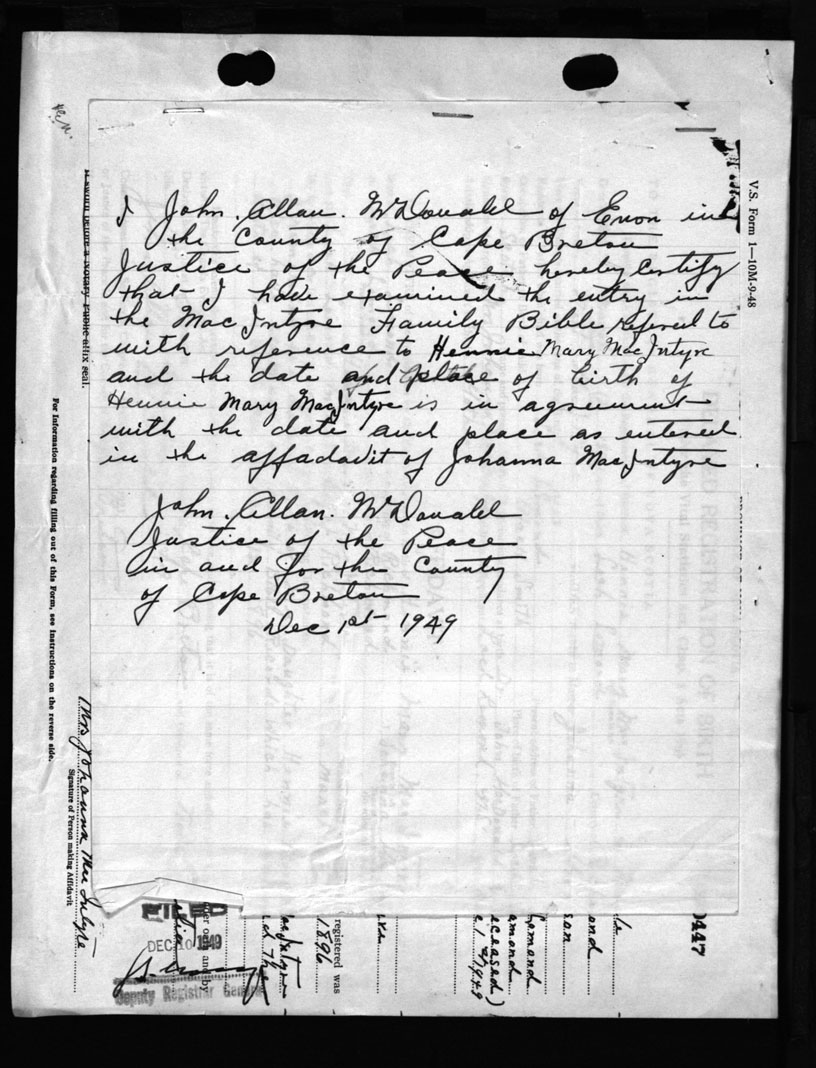 I John. Allan. McDonald of Enon in
the County of Cape Breton
Justice of the Peace hereby Certify
that I have examined the entry in
the MacIntyre Family Bible refered to
with reference to Hennie Mary MacIntyre
and the date and place of birth of
Hennie Mary MacIntyre is in agreement
with the date and place as entered
in the affadavit of Johanna MacIntyre
John. Allan. McDonald
Justice of the Peace
in and for the County
of Cape Breton
Dec 1st 1949
V.S. Form 1—10M-9-48
If sworn before a Notary Public affix seal.
For Information regarding filling out of this Form, see Instructions on the reverse side.
Mrs Johanna Mac Intyre
Signature of Person making Affidavit
FILED
DEC 10 1949
Deputy Registrar General
and by
registered was
1896
amond
eceased)
1949
0447